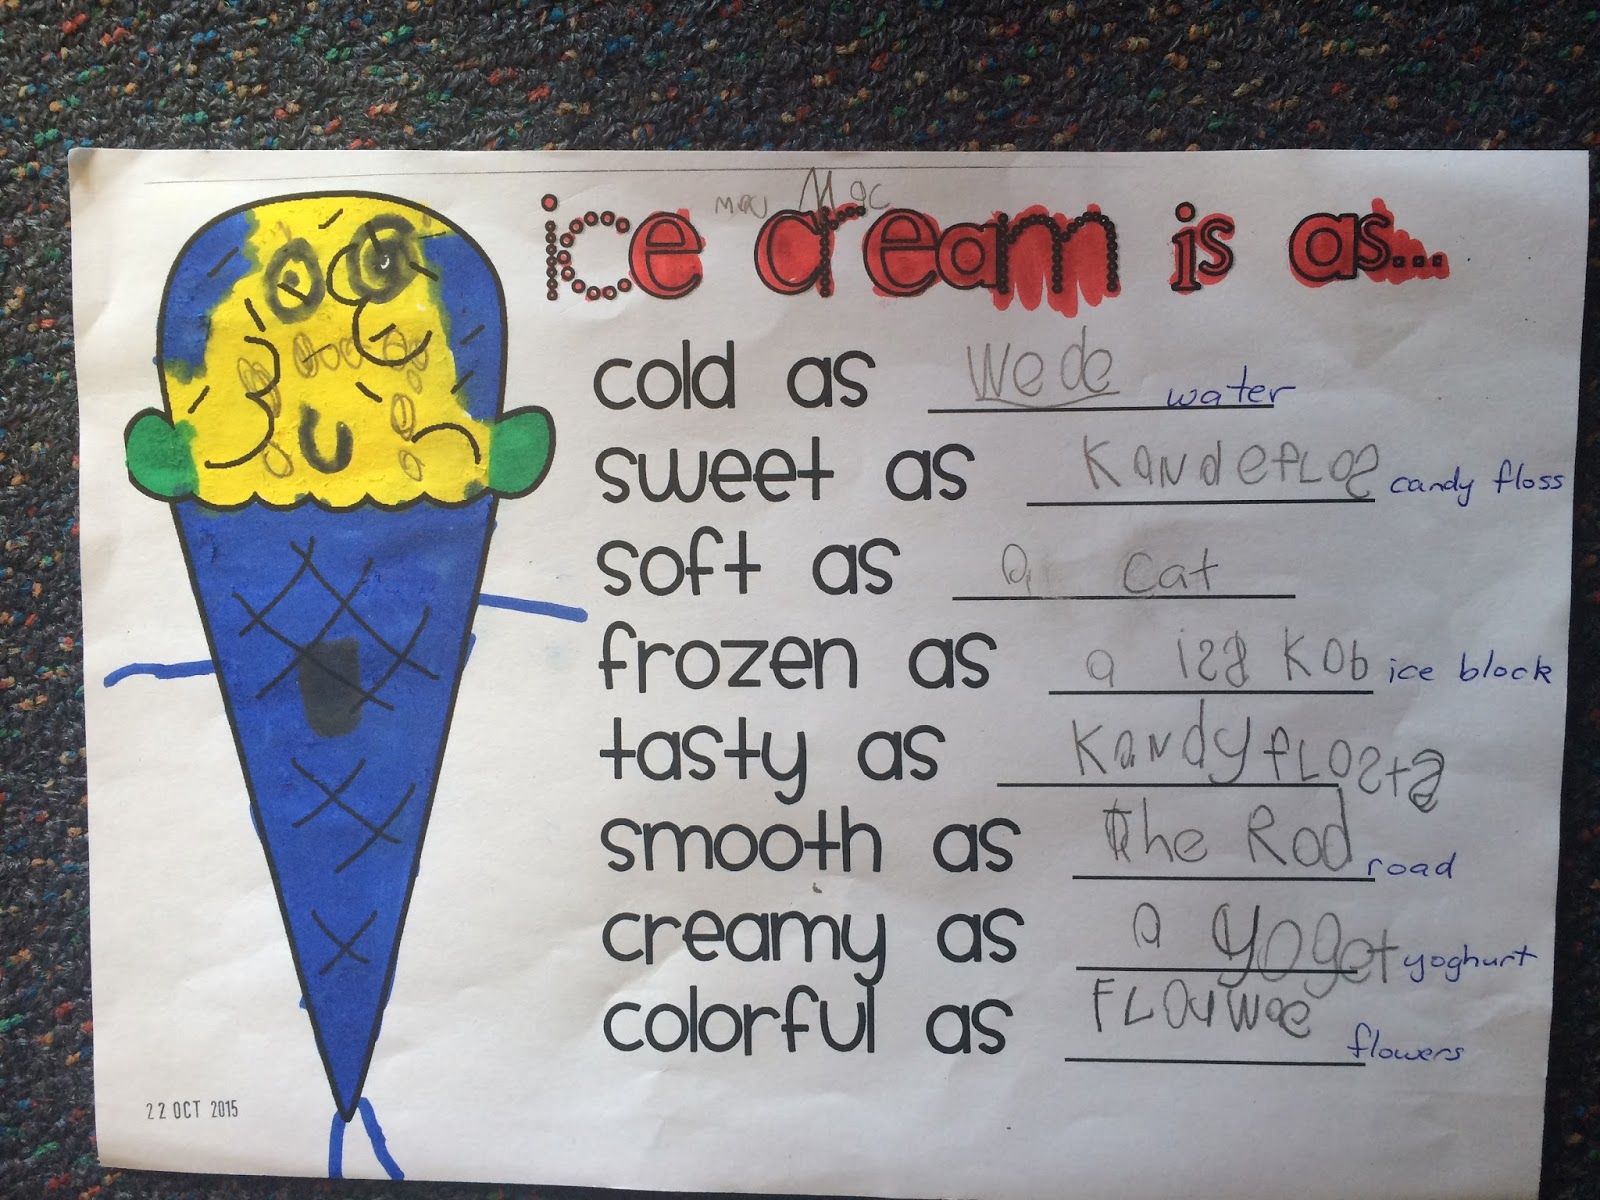 ice cream is as...
cold as wede water
sweet as Kandeflos candy floss
soft as a cat
frozen as a iss Kob ice block
tasty as Kandyflosts
smooth as the Rod road
creamy as a yoget yoghurt
colorful as FLOUWOE flowers
22 OCT 2015